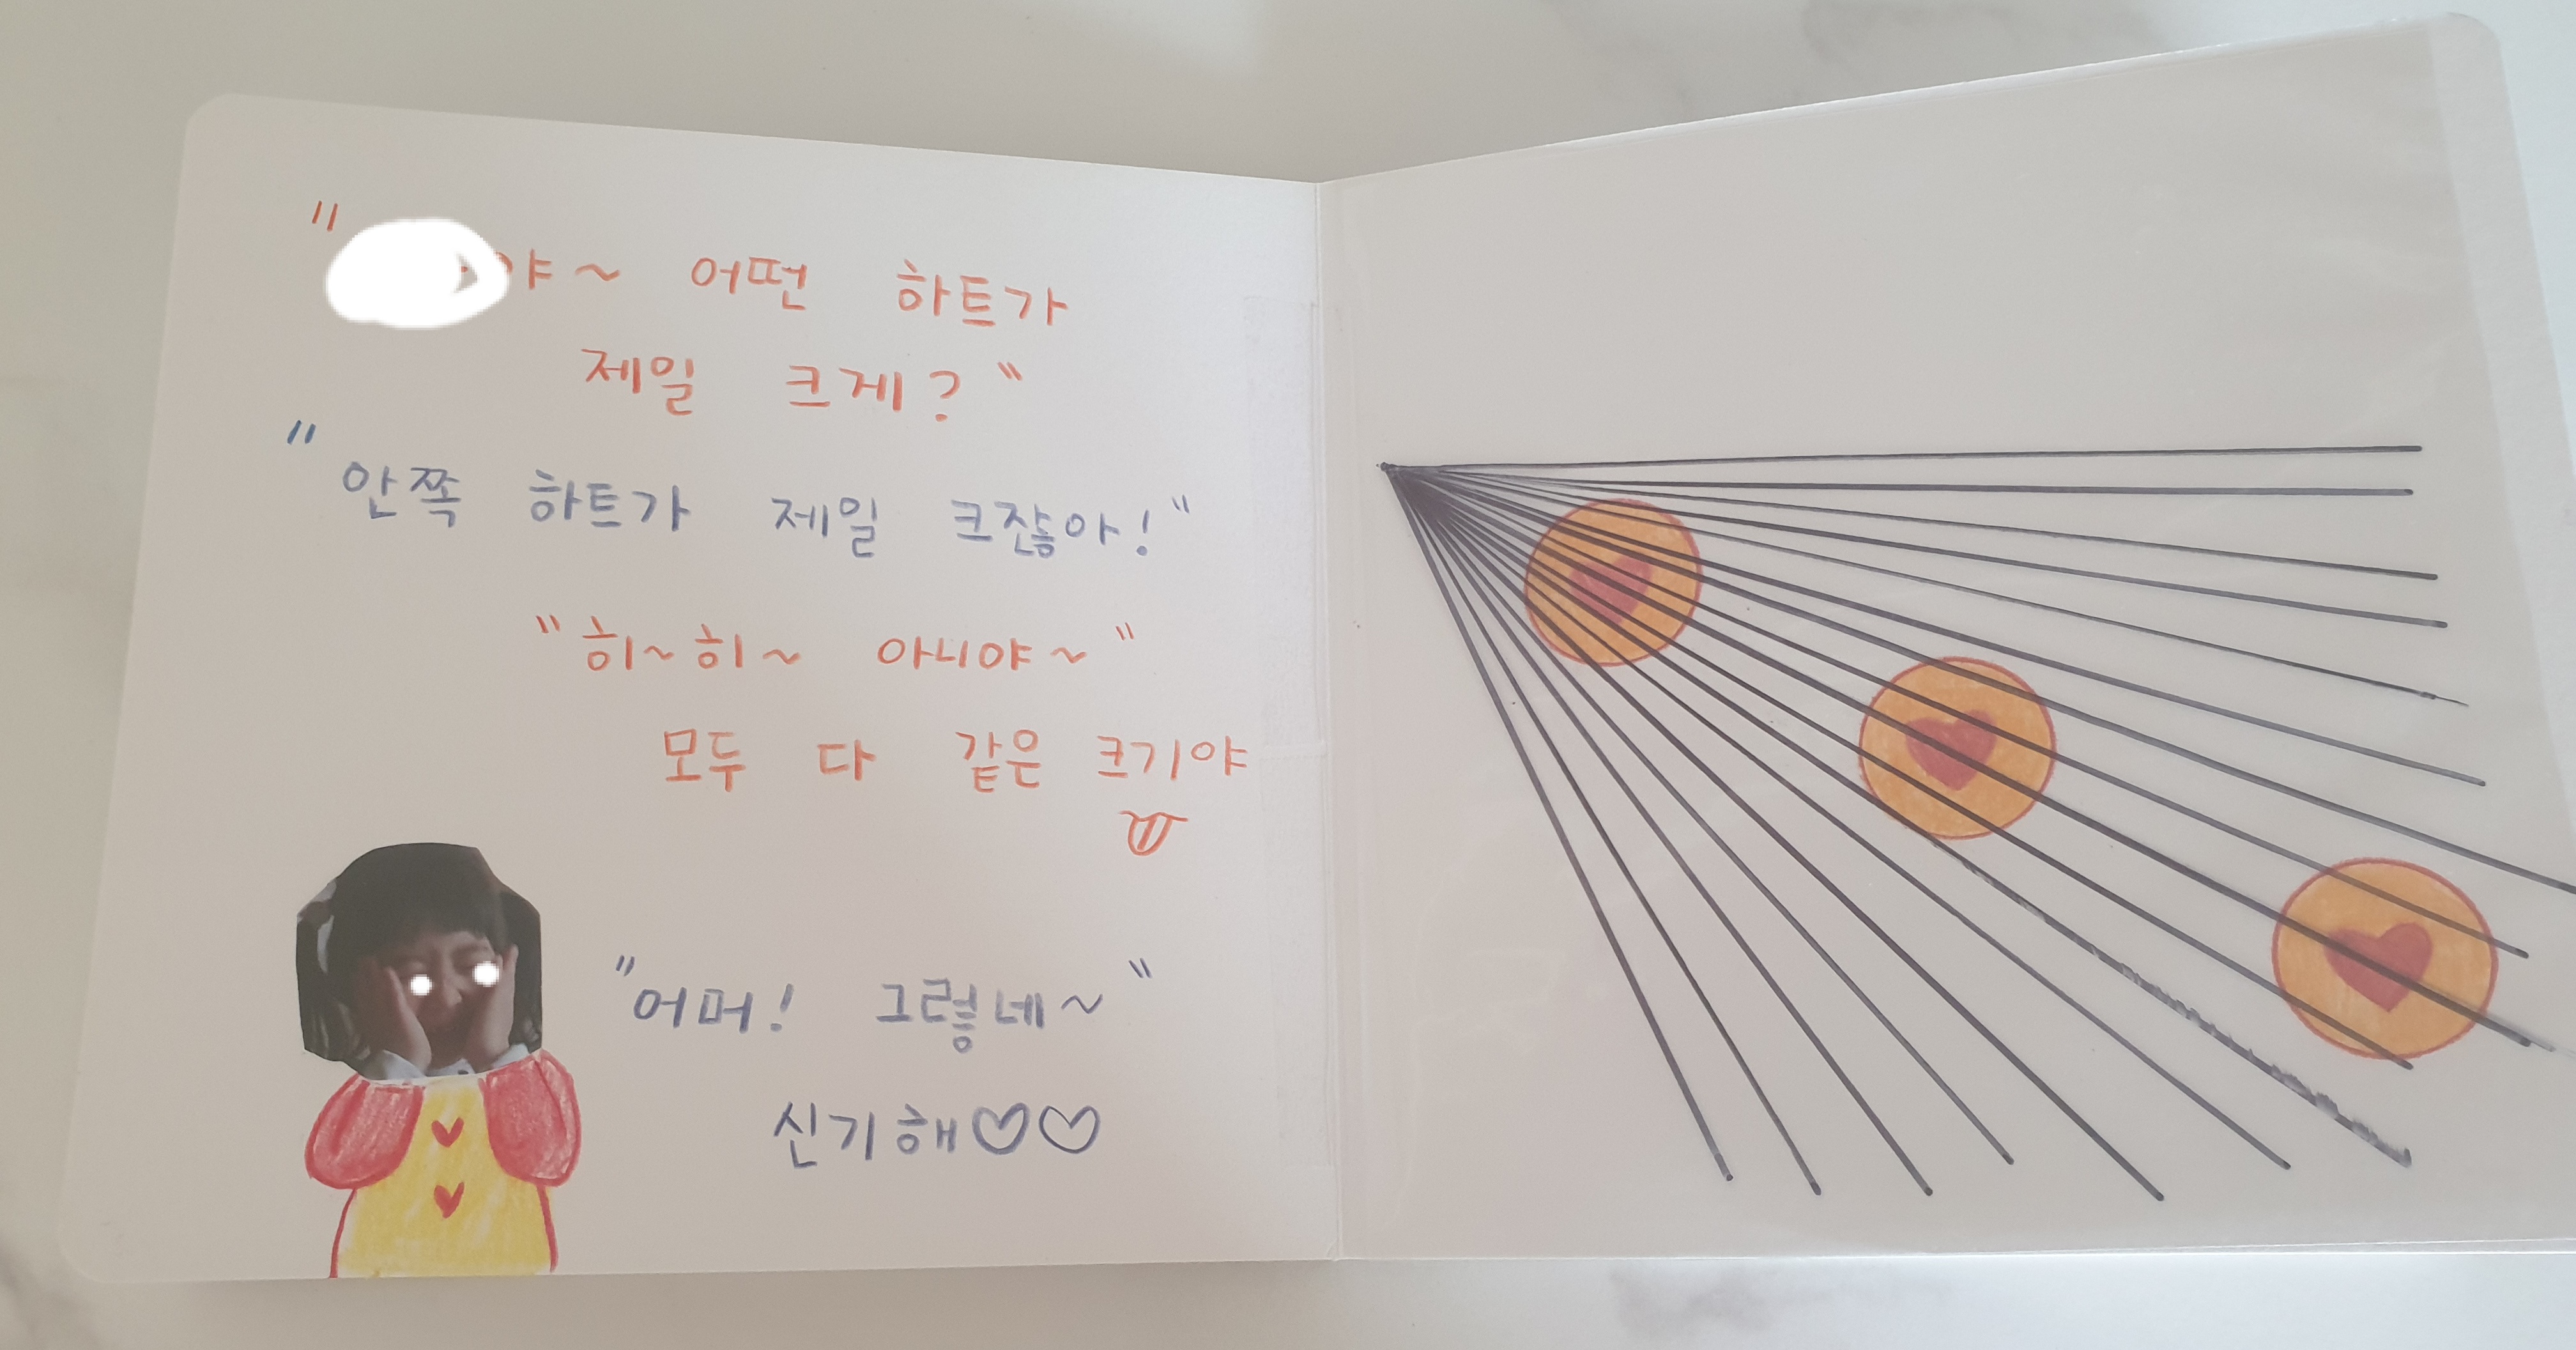 "야~ 어떤 하트가
제일 크게?"
"안쪽 하트가 제일 크잖아!"
"히~히~ 아니야~"
모두 다 같은 크기야
"어머! 그렇네~"
신기해♡♡